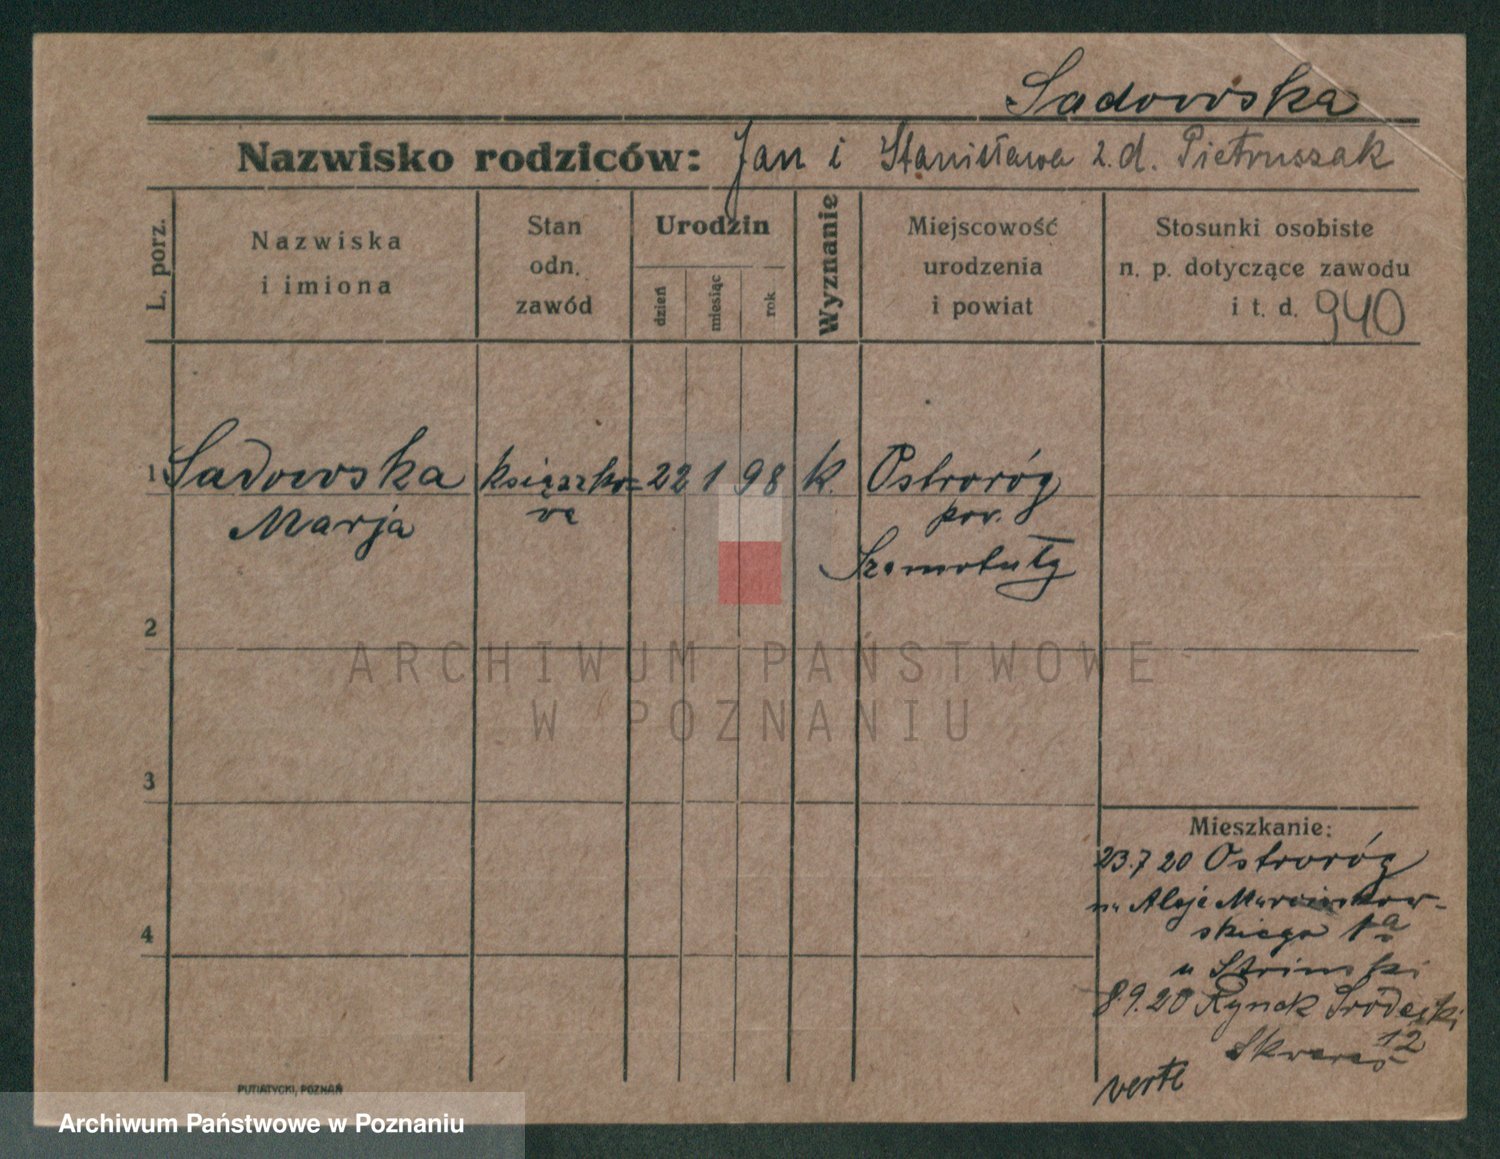 Sadowska
Nazwisko rodziców: Jan i Stanisława z. d. Pietruszak
L. porz.
Nazwiska
i imiona
Stan
odn.
zawód
Urodzin
dzień
miesiąc
rok
Wyznanie
Miejscowość
urodzenia
i powiat
Stosunki osobiste
n. p. dotyczące zawodu
i t. d. 940
1 Sadowska książko= 22 1 98 k. Ostroróg
Marja wa pow.
Szamotuły
2
ARCHIWUM PAŃSTWOWE
W POZNANIU
3
Mieszkanie:
23.7 20 Ostroróg
Aleje Marcinkow-
4
skiego 1a
u
8.9.20 Rynek Śródecki
12
verte
PUTIATYCKI, POZNAŃ
Archiwum Państwowe w Poznaniu